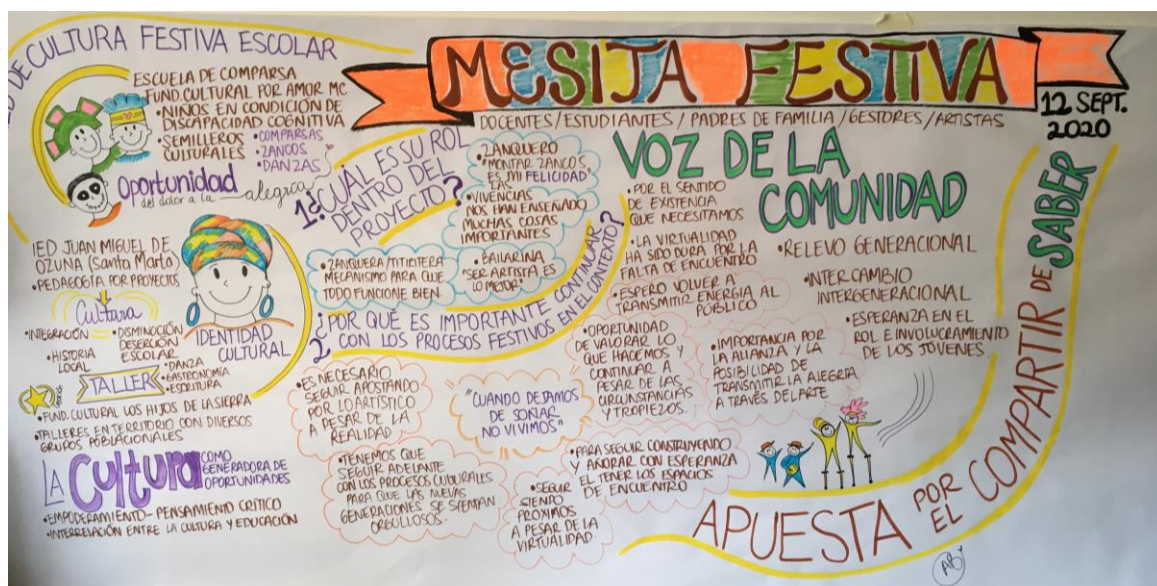 MESITA FESTIVA
12 SEPT.
2020
DOCENTES/ESTUDIANTES / PADRES DE FAMILIA /GESTORES /ARTISTAS
DE CULTURA FESTIVA ESCOLAR
ESCUELA DE COMPARSA
FUND. CULTURAL POR AMOR MC
•NIÑOS EN CONDICIÓN DE
DISCAPACIDAD COGNITIVA
•SEMILLEROS
CULTURALES
•COMPARSAS
•ZANCOS
•DANZAS
Oportunidad
del dolor a la alegría
IED JUAN MIGUEL DE
OZUNA (Santa Marta)
•PEDAGOGÍA POR PROYECTOS
Cultura
•INTEGRACIÓN
•DISMINUCIÓN
DESERCIÓN
ESCOLAR
•HISTORIA
LOCAL
TALLER
•DANZA
•GASTRONOMÍA
•ESCRITURA
IDENTIDAD
CULTURAL
•FUND. CULTURAL LOS HIJOS DE LA SIERRA
•TALLERES EN TERRITORIO CON DIVERSOS
GRUPOS POBLACIONALES
LA Cultura COMO
GENERADORA DE
OPORTUNIDADES
•EMPODERAMIENTO- PENSAMIENTO CRÍTICO
•INTERRELACIÓN ENTRE LA CULTURA Y EDUCACIÓN
1 ¿CUÁL ES SU ROL
DENTRO DEL
PROYECTO?
•ZANQUERO
"MONTAR ZANCOS
ES MI FELICIDAD"
LAS
•VIVENCIAS
NOS HAN ENSEÑADO
MUCHAS COSAS
IMPORTANTES
•ZANQUERA TITIRITERA
MECANISMO PARA QUE
TODO FUNCIONE BIEN
•BAILARINA
"SER ARTISTA ES
LO MEJOR"
2 ¿POR QUÉ ES IMPORTANTE CONTINUAR
CON LOS PROCESOS FESTIVOS EN EL CONTEXTO?
•ES NECESARIO
SEGUIR APOSTANDO
POR LO ARTÍSTICO
A PESAR DE LA
REALIDAD
"CUANDO DEJAMOS
DE SOÑAR
NO VIVIMOS"
•TENEMOS QUE
SEGUIR ADELANTE
CON LOS PROCESOS CULTURALES
PARA QUE LAS NUEVAS
GENERACIONES SE SIENTAN
ORGULLOSOS.
•SEGUIR
SIENDO
PRÓXIMOS
A PESAR DE LA
VIRTUALIDAD.
•PARA SEGUIR CONSTRUYENDO
Y AÑORAR CON ESPERANZA
EL TENER LOS ESPACIOS
DE ENCUENTRO
VOZ DE LA
COMUNIDAD
•POR EL SENTIDO
DE EXISTENCIA
QUE NECESITAMOS
•LA VIRTUALIDAD
HA SIDO DURA POR LA
FALTA DE ENCUENTRO
•ESPERO VOLVER A
TRANSMITIR ENERGÍA AL
PÚBLICO
•OPORTUNIDAD
DE VALORAR LO
QUE HACEMOS Y
CONTINUAR A
PESAR DE LAS
CIRCUNSTANCIAS
Y TROPIEZOS.
•IMPORTANCIA POR
LA ALIANZA Y LA
POSIBILIDAD DE
TRANSMITIR LA ALEGRÍA
A TRAVÉS DEL ARTE
•RELEVO GENERACIONAL
•INTERCAMBIO
INTERGENERACIONAL
•ESPERANZA EN EL
ROL E INVOLUCRAMIENTO
DE LOS JÓVENES
APUESTA POR
EL COMPARTIR DE SABER
AB